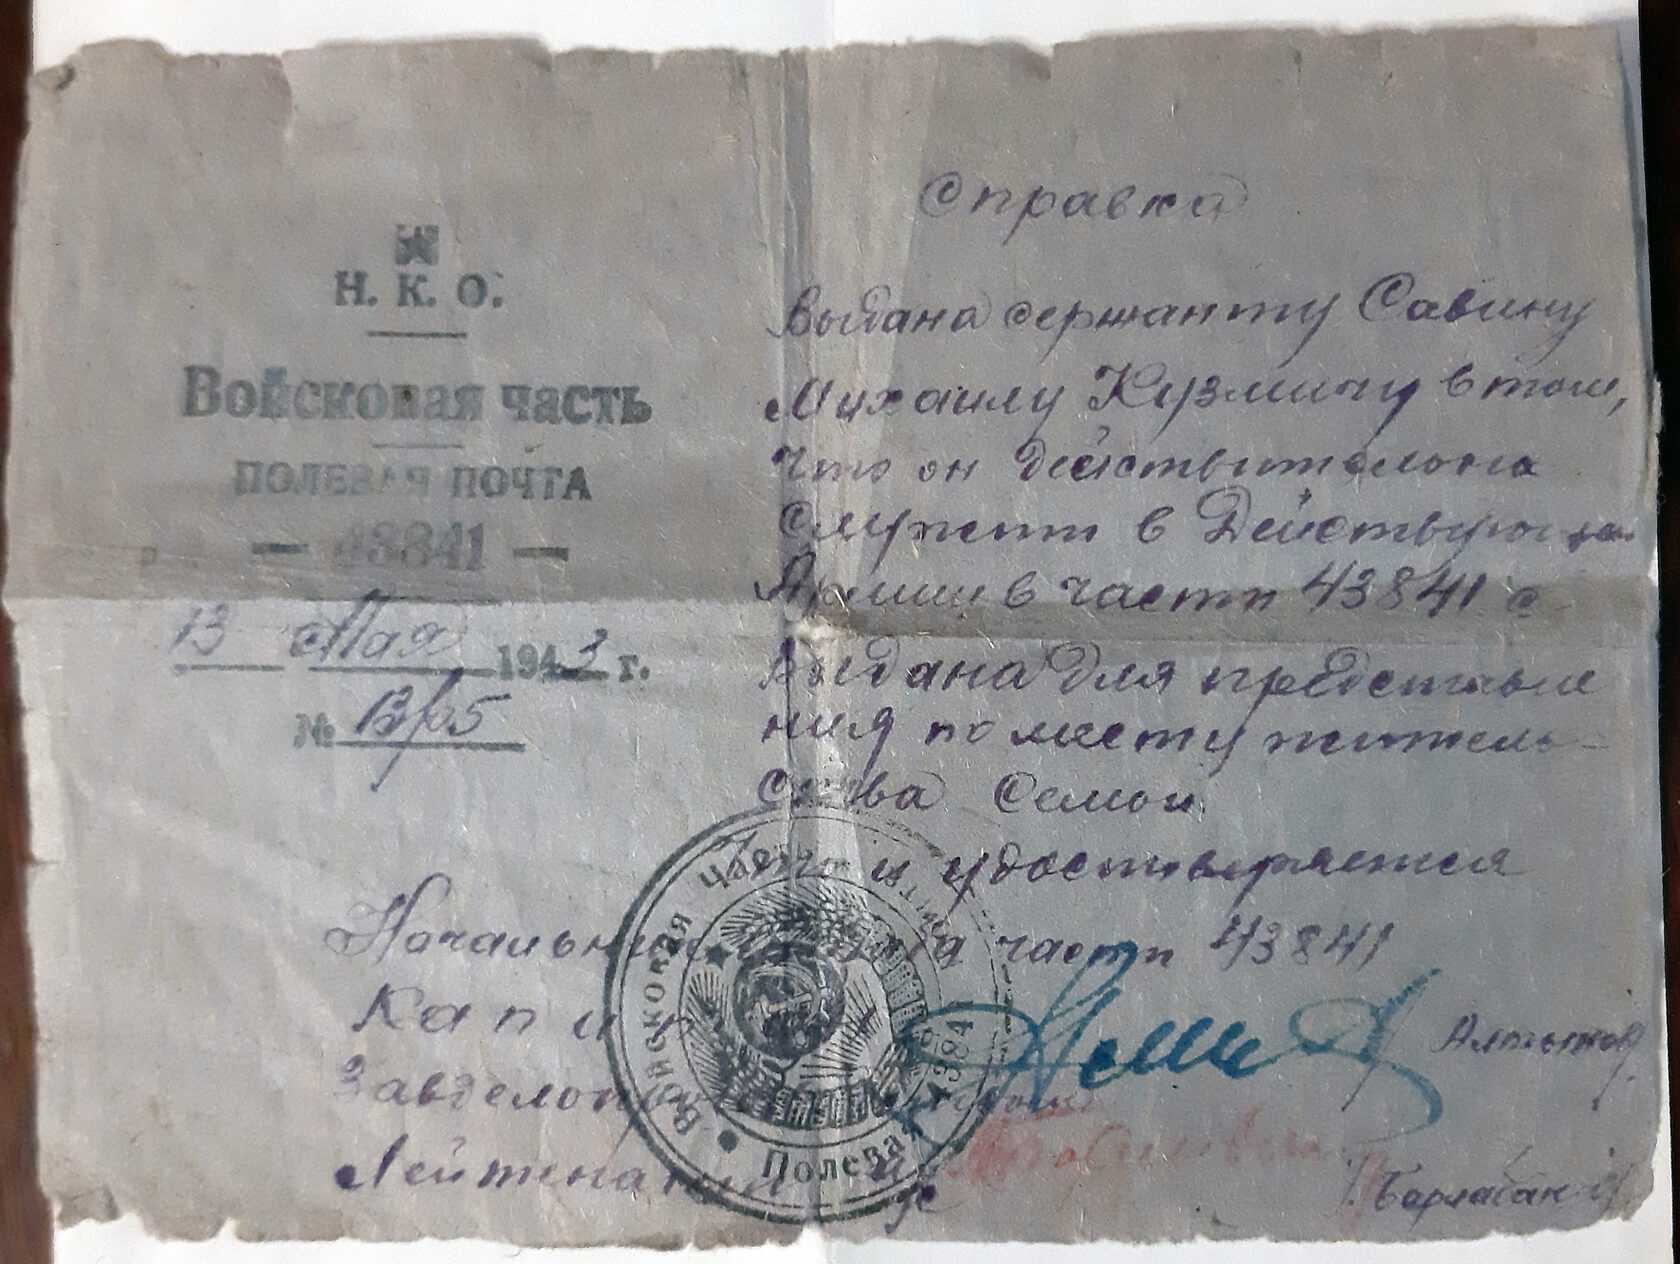 Н. К. О.
Войсковая часть
ПОЛЕВАЯ ПОЧТА
— 43841 —
13 Мая 1943 г.
№ 13/05
Справка
Выдана сержанту Савину
Михаилу Кузмичу в том,
что он действительно
служит в Действующей
Армии в части 43841
Выдана для представле
ния по месту житель-
ства семьи
и удостоверяется
Начальник части 43841
Капитан
Завделопр
Лейтенант
Барлабан
Войсковая часть
Полевая почта
43841